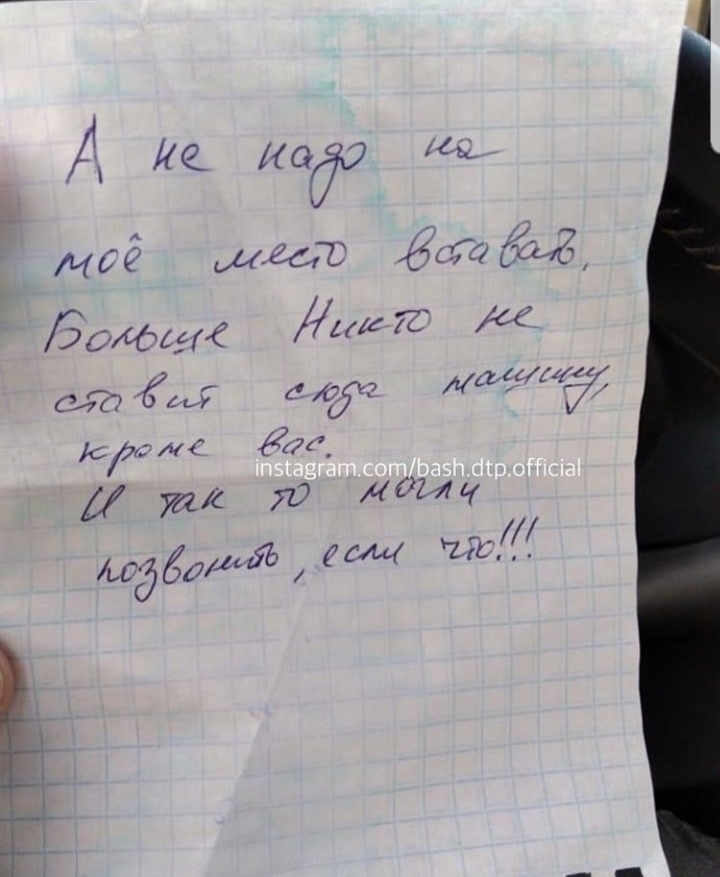 А не надо на
моё место вставать.
Больше Никто не
ставит сюда машину,
кроме вас.
instagram.com/bash.dtp.official
И так то могли
позвонить, если что!!!